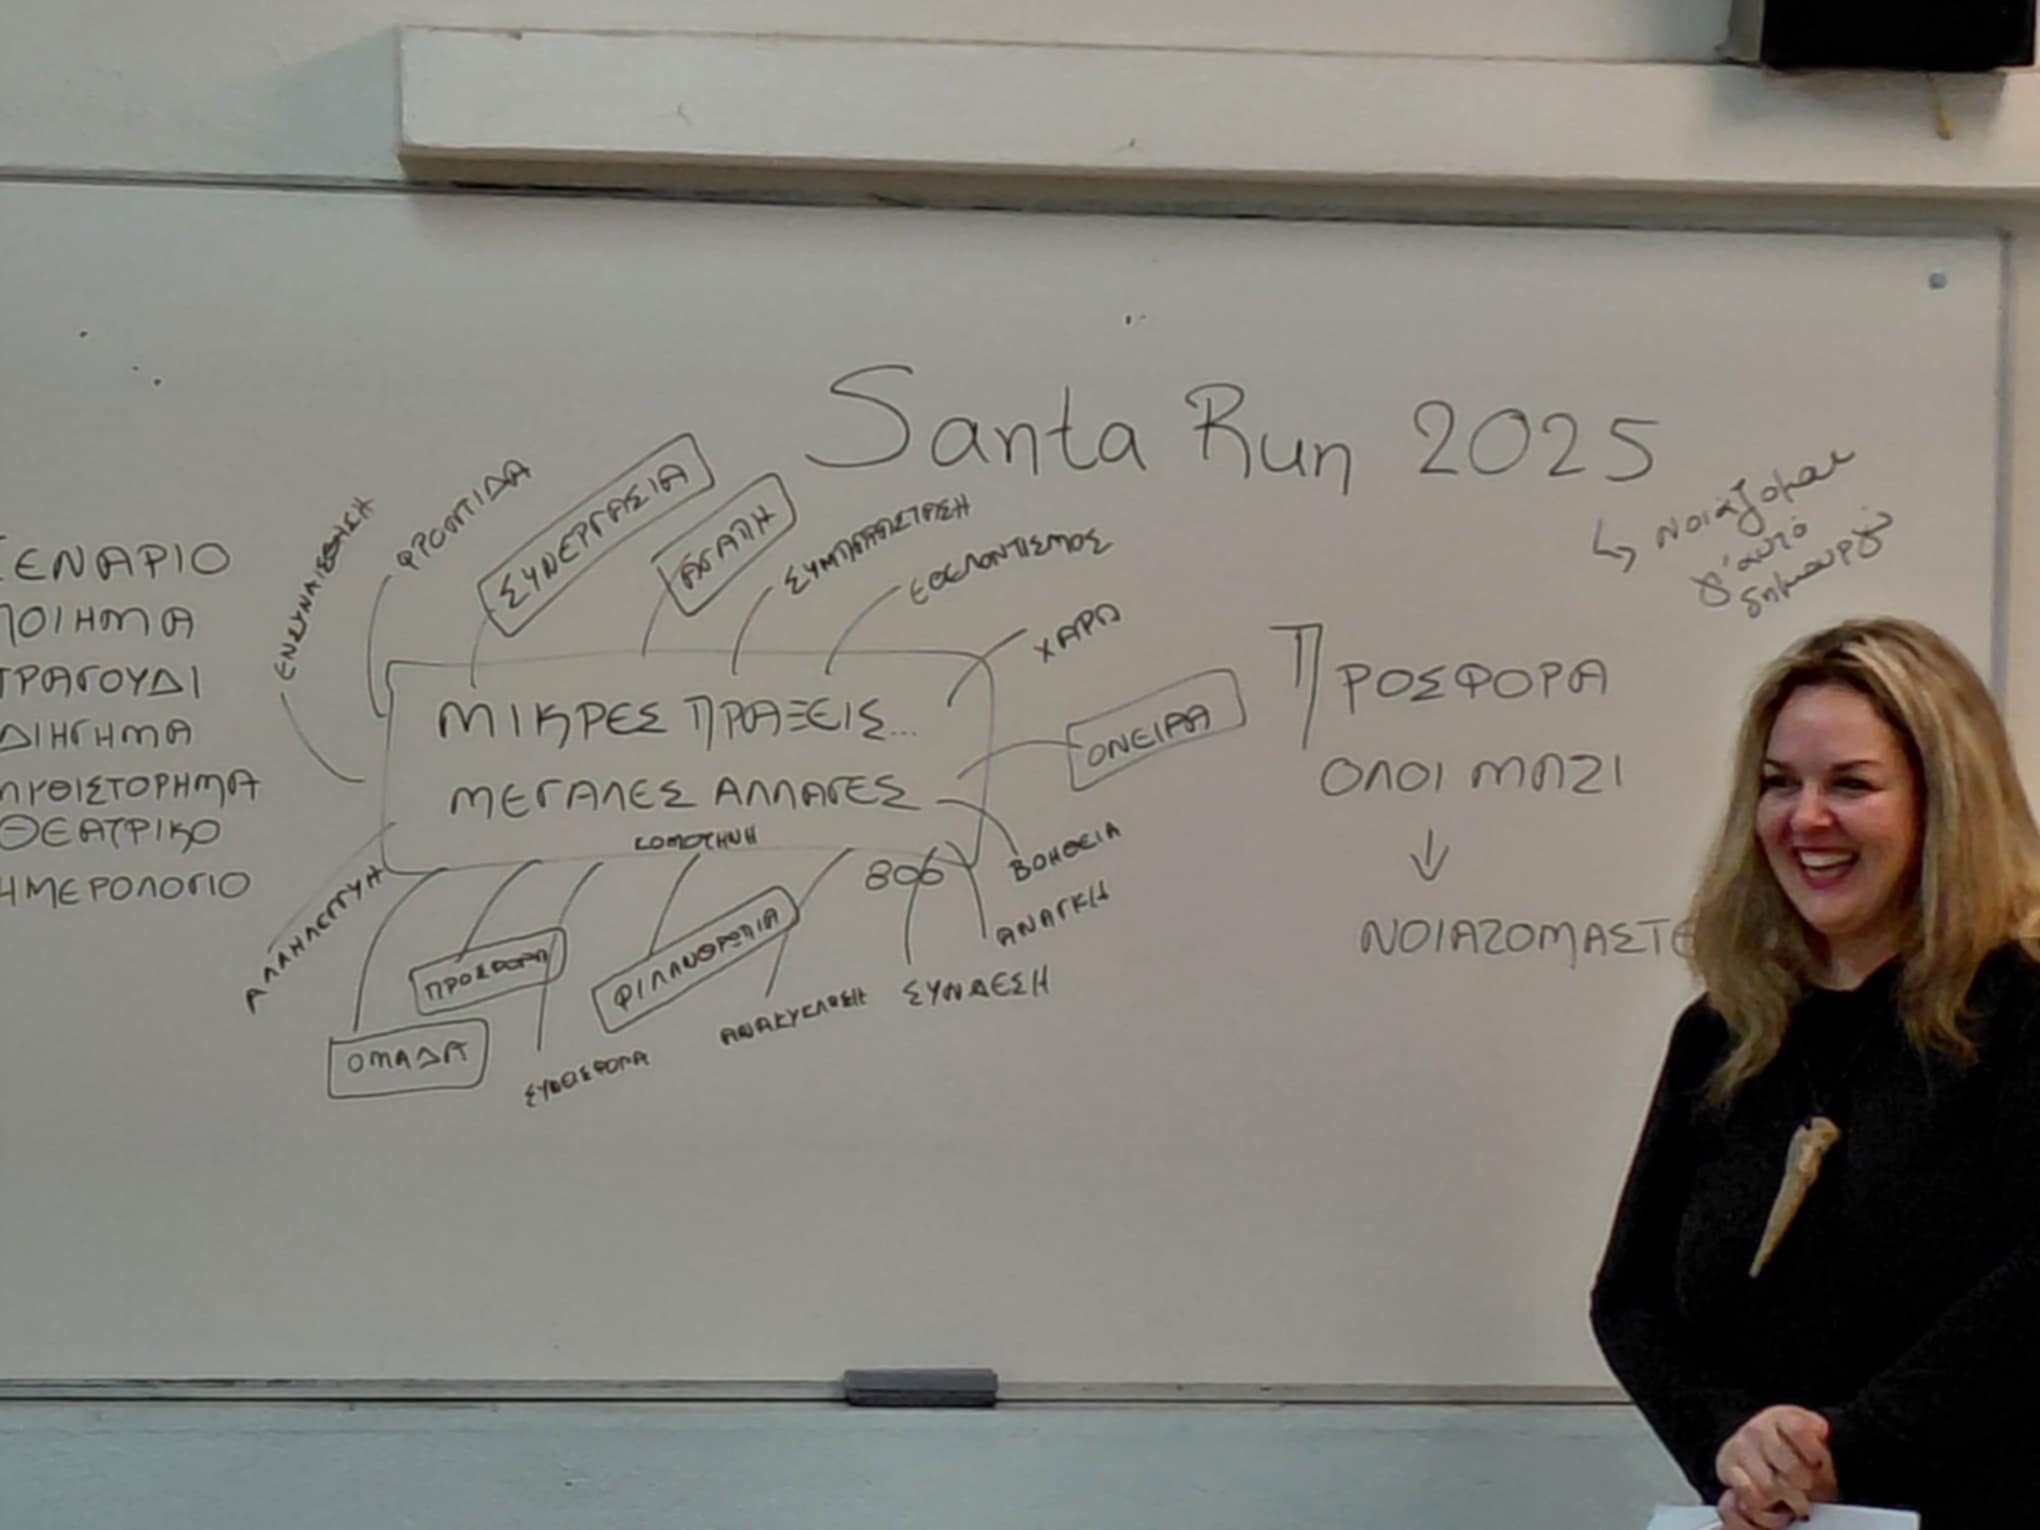 Santa Run 2025
↳ νοιάζομαι
γ'αυτό
δημιουργώ
ΣΕΝΑΡΙΟ
ΠΟΙΗΜΑ
ΤΡΑΓΟΥΔΙ
ΔΙΗΓΗΜΑ
ΜΥΘΙΣΤΟΡΗΜΑ
ΘΕΑΤΡΙΚΟ
ΗΜΕΡΟΛΟΓΙΟ
ΕΝΣΥΝΑΙΣΘΗΣΗ
ΦΡΟΝΤΙΔΑ
ΣΥΝΕΡΓΑΣΙΑ
ΑΓΑΠΗ
ΣΥΜΠΑΡΑΣΤΑΣΗ
ΕΘΕΛΟΝΤΙΣΜΟΣ
ΧΑΡΑ
ΟΝΕΙΡΑ
ΜΙΚΡΕΣ ΠΡΑΞΕΙΣ...
ΜΕΓΑΛΕΣ ΑΛΛΑΓΕΣ
ΚΟΜΟΤΗΝΗ
ΒΟΗΘΕΙΑ
ΑΝΑΓΚΗ
806
ΣΥΝΔΕΣΗ
ΑΝΑΚΥΚΛΩΣΗ
ΦΙΛΑΝΘΡΩΠΙΑ
ΣΥΝΕΙΣΦΟΡΑ
ΠΡΟΣΦΟΡΑ
ΟΜΑΔΑ
ΑΛΛΗΛΕΓΓΥΗ
ΠΡΟΣΦΟΡΑ
ΟΛΟΙ ΜΑΖΙ
↓
ΝΟΙΑΖΟΜΑΣΤΕ